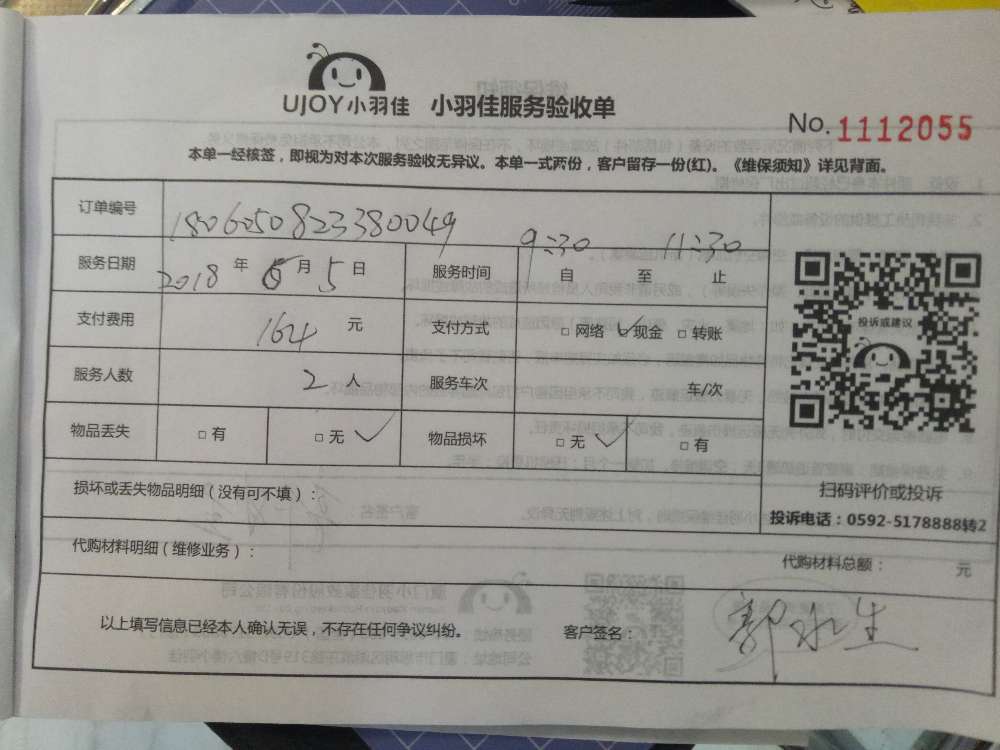 UJOY小羽佳 小羽佳服务验收单
No. 1112055
本单一经核签，即视为对本次服务验收无异议。本单一式两份，客户留存一份(红)。《维保须知》详见背面。
订单编号 1806050823380049
服务日期 2018 年 6 月 5 日 服务时间 9:30 自 至 11:30 止
支付费用 164 元 支付方式 □ 网络 ✓ 现金 □ 转账
服务人数 2 人 服务车次 车/次
物品丢失 □ 有 □ 无 ✓ 物品损坏 □ 无 ✓ □ 有
投诉或建议
扫码评价或投诉
投诉电话：0592-5178888转2
损坏或丢失物品明细（没有可不填）：
代购材料明细（维修业务）： 代购材料总额： 元
以上填写信息已经本人确认无误，不存在任何争议纠纷。 客户签名： 郭永生